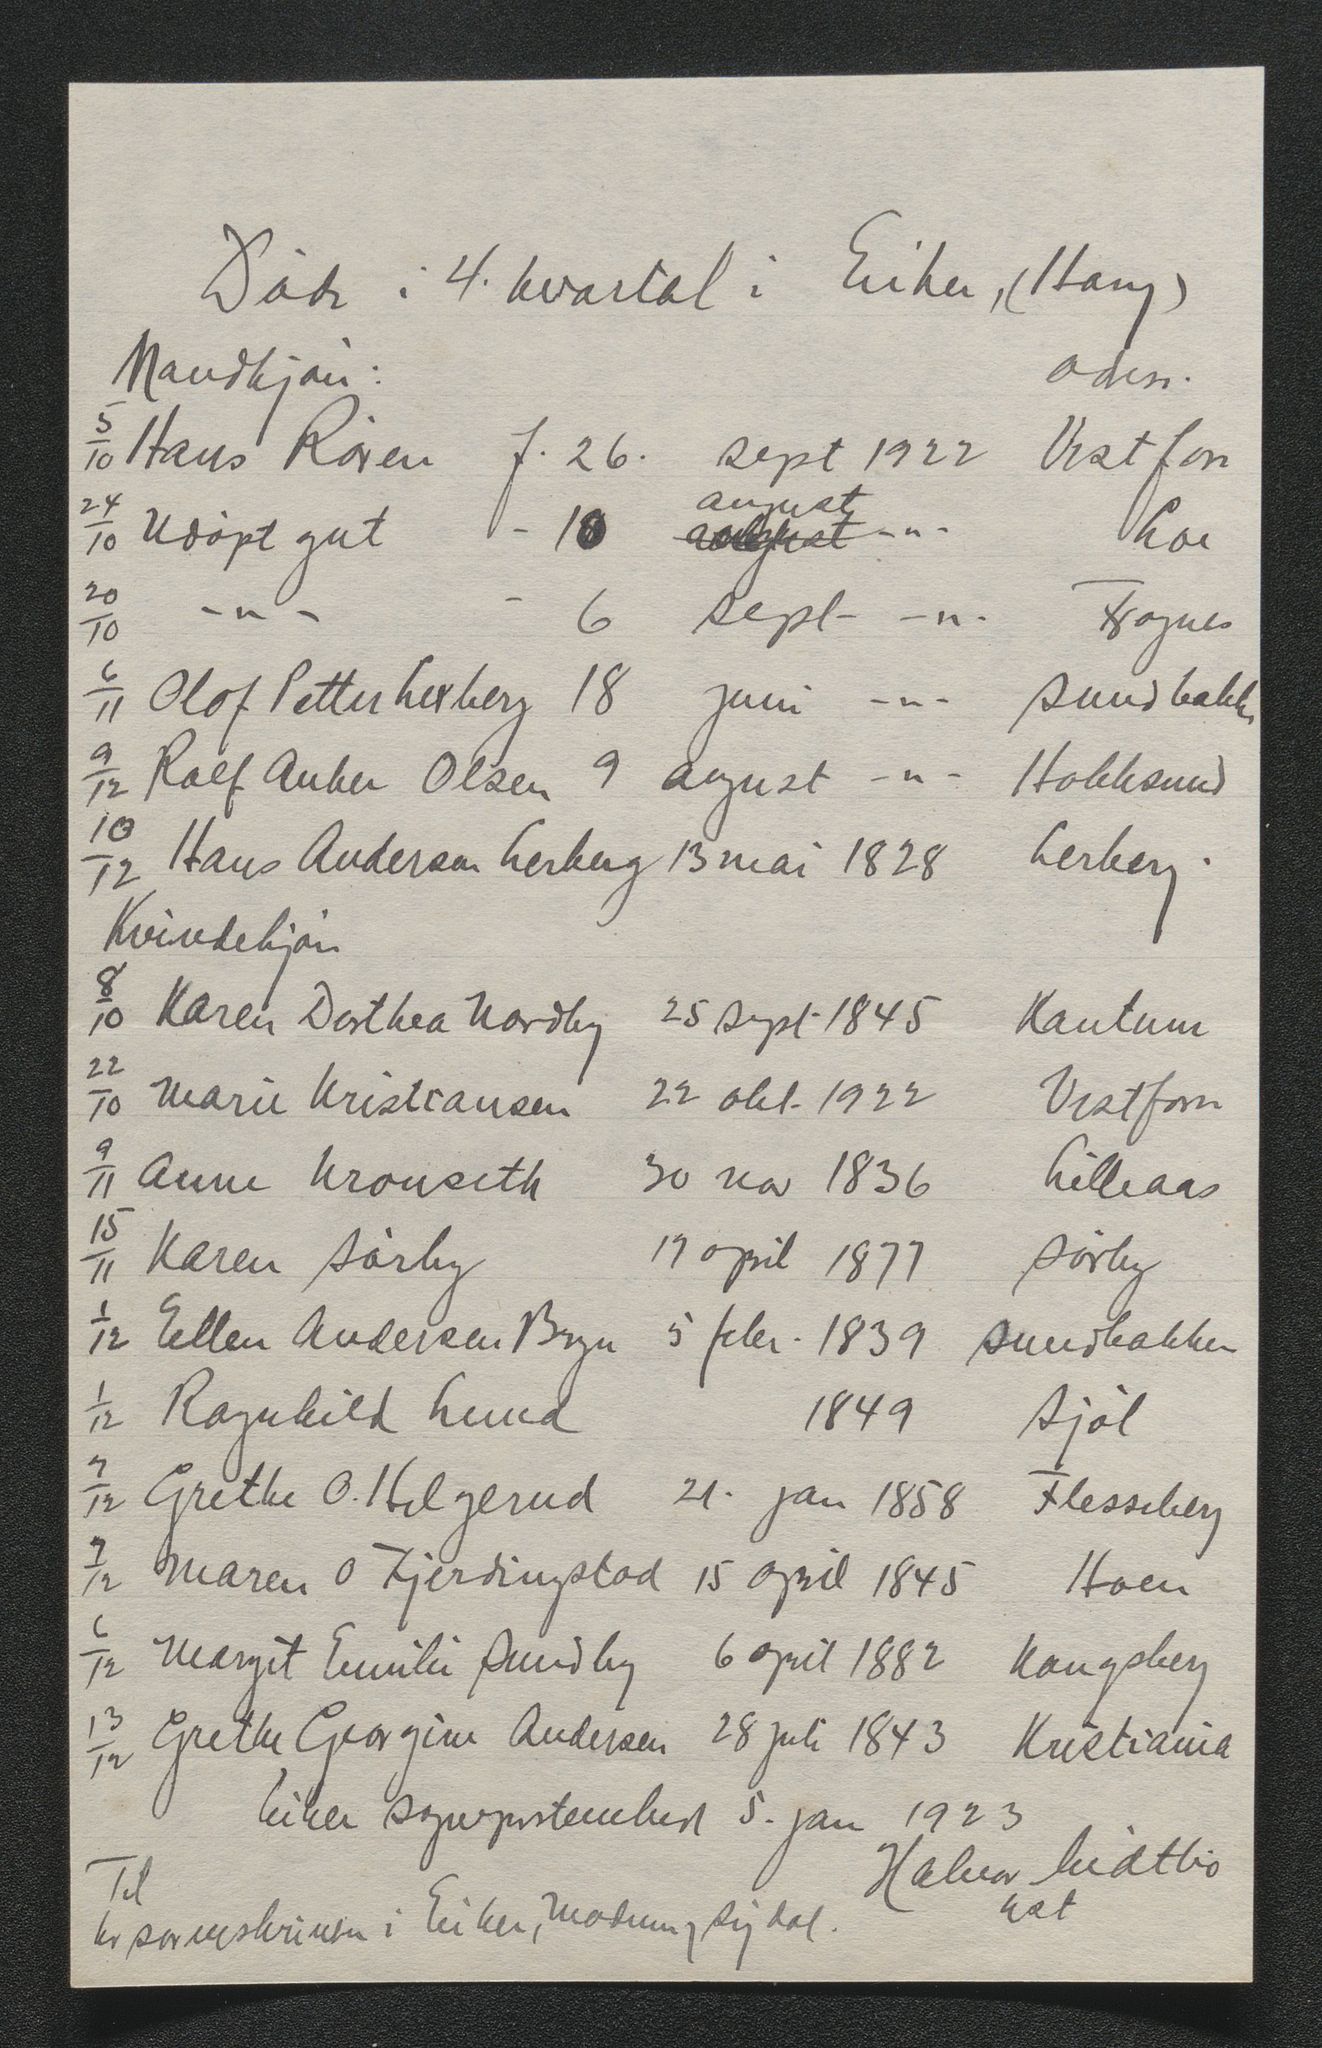 Døde i 4. kvartal i Eiker, (Haug)
Mandkjøn: adrss.
5/10 Hans Røren f. 26. sept 1922 Vestfoss
24/10 Udøpt gut - 10 august -"- Loe
20/10 -"- - 6 sept- -"- Fragnes
6/11 Olof Petter Lerberg 18 juni -"- Sundbakk.
9/12 Rolf Anker Olsen 9 august -"- Hokksund
10/12 Hans Andersen Lerberg 13 mai 1828 Lerberg.
Kvindekjøn
8/10 Karen Dorthea Nordby 25 sept 1845 Kantum
22/10 Marie Kristiansen 22 okt. 1922 Vestfoss
9/11 Anne Kronseth 30 nov 1836 Lilleaas
15/11 Karen Sørby 17 april 1877 Sørby
1/12 Ellen Andersen Bryn 5 febr. 1839 Sundbakken
1/12 Ragnhild Lund 1849 Sjøl
7/12 Grethe O. Helgerud 21. jan 1858 Flesseberg
7/12 Maren O Fjerdingstad 15 april 1845 Hoen
6/12 Margit Emilie Sundby 6 april 1882 Kongsberg
13/12 Grethe Georgine Andersen 28 juli 1843 Kristiania
Eiker sogneprestembed 5. jan 1923
Halvor Midtbø
kst
Til
hr sorenskriveren i Eiker, Modum, Sigdal.